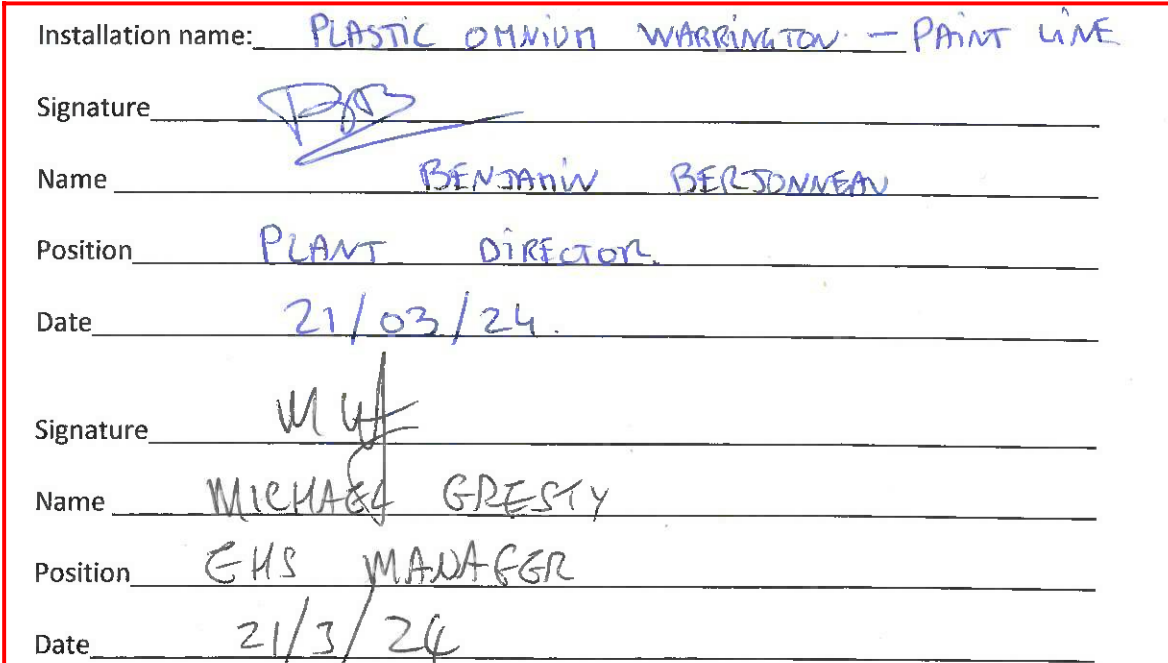 Installation name: PLASTIC OMNIUM WARRINGTON - PAINT LINE
Signature
Name BENJAMIN BERJONNEAU
Position PLANT DIRECTOR.
Date 21/03/24.
Signature
Name MICHAEL GRESTY
Position EHS MANAGER
Date 21/3/24